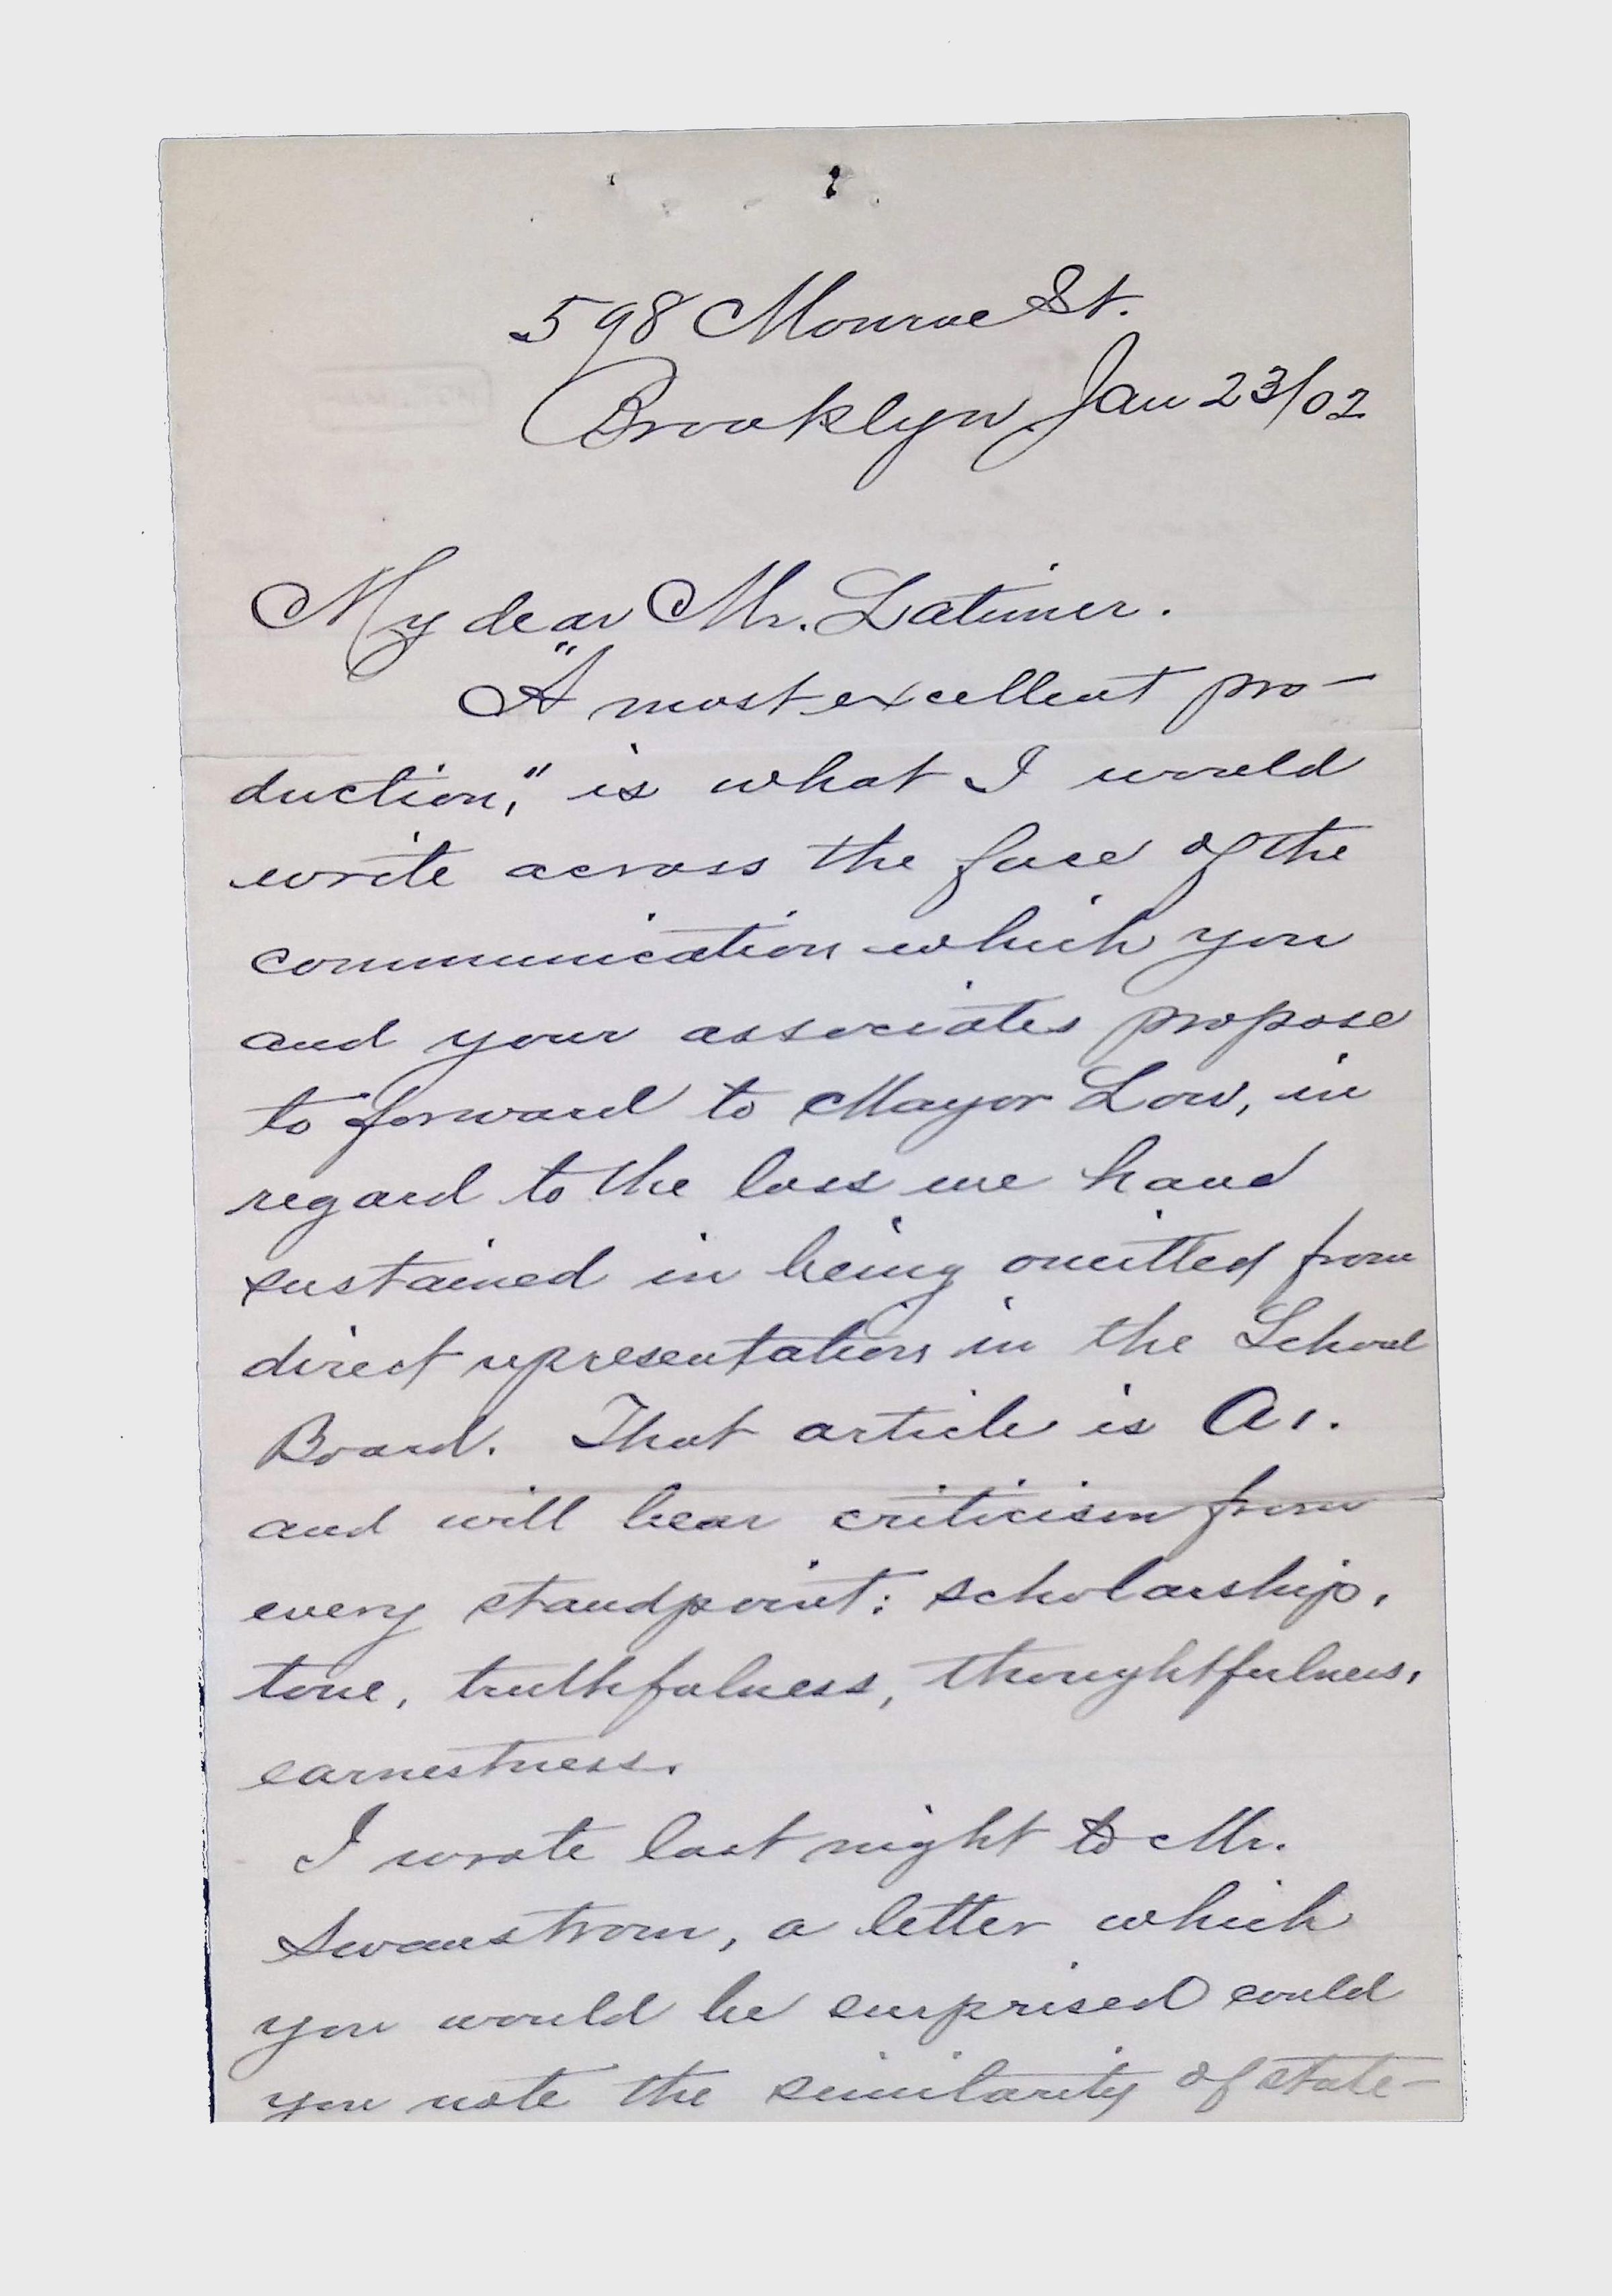 598 Monroe St.
Brooklyn Jan 23/02
My dear Mr. Latimer.
"A most excellent pro-
duction," is what I would
write across the face of the
communication which you
and your associates propose
to forward to Mayor Low, in
regard to the loss we have
sustained in being omitted from
direct representation in the School
Board. That article is A1.
and will bear criticism from
every standpoint: scholarship,
tone, truthfulness, thoughtfulness,
earnestness.
I wrote last night to Mr.
Swanstrom, a letter which
you would be surprised could
you note the similarity of state-